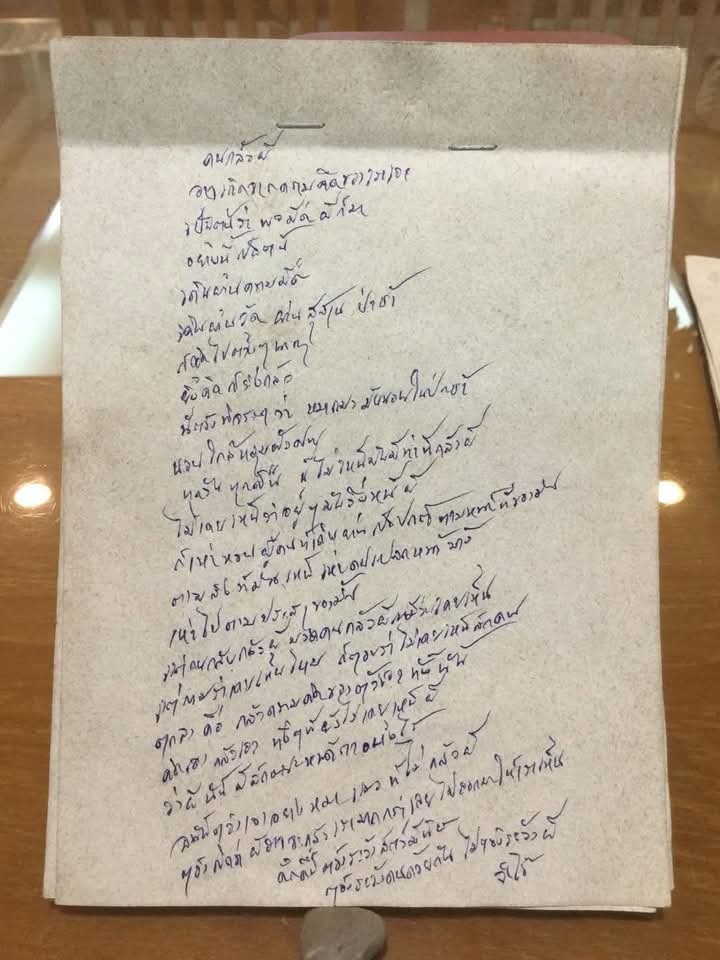 คนกลัวผี
อาจเกิดจากความคิดของเราเอง
พอมืด ผีก็มา
เดินผ่านความมืด
เดินผ่านวัด ผ่านสุสาน ป่าช้า
คิดไปต่างๆนาๆ
ยิ่งคิดก็ยิ่งกลัว
ว่า หมาแมว มันนอนในป่าช้า
นอนใกล้หลุมฝังศพ
ทุกวัน ทุกคืน ก็ไม่เห็นมันมีท่าทีกลัวผี
ไม่เคยเห็นว่าอยู่ๆมันวิ่งหนีผี
ก็เห่าหอน ผู้คนที่เดินผ่าน ก็เป็นปกติ ตามหน้าที่ของมัน
ตามสิ่งที่มันเห็น เห่าคนแปลกหน้าบ้าง
เห่าไปตามประสาของมัน
แต่คนกลับกลัวผี
แต่ถามว่าเคยเห็นไหม ก็ตอบว่า ไม่เคยเห็นสักคน
ตกลง คือ กลัวความคิดของตัวเอง ทั้งนั้น
คิดเอง กลัวเอง ทั้งๆที่ยังไม่เคยเห็นผี
ว่าผีนั้น มีลักษณะหน้าตาอย่างไร
เอาอย่างหมา แมว ที่ไม่กลัวผี
ผีอาจจะกลัวเรามากกว่า เลยไม่ออกมาให้เราเห็น
ต้องระวังคนด้วยกัน ไม่ต้องระวังผี